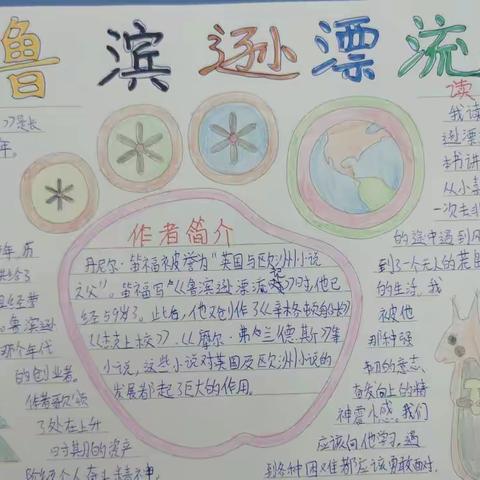 鲁滨逊漂流
作者简介
丹尼尔·笛福被誉为"英国与欧洲小说
之父"。笛福写《鲁滨逊漂流记》时,他已
经59岁了。此后,他又创作了《辛格顿船长》
《杰克上校》、《摩尔·弗兰德斯》等
小说,这些小说对英国及欧洲小说的
发展都起了巨大的作用。
》是长
年。
年,历
且经营
鲁滨逊
那个年代
的创业者。
了处在上升
时期的资产
读
我读
逊漂流
本书讲
从小
一次去
的途中遇到风
到了一个无人的荒
的生活。我
被他
那种强
韧的意志、
奋发向上的精
神震撼。我们
应该向他学习,遇
到各种困难都应该勇敢面对。